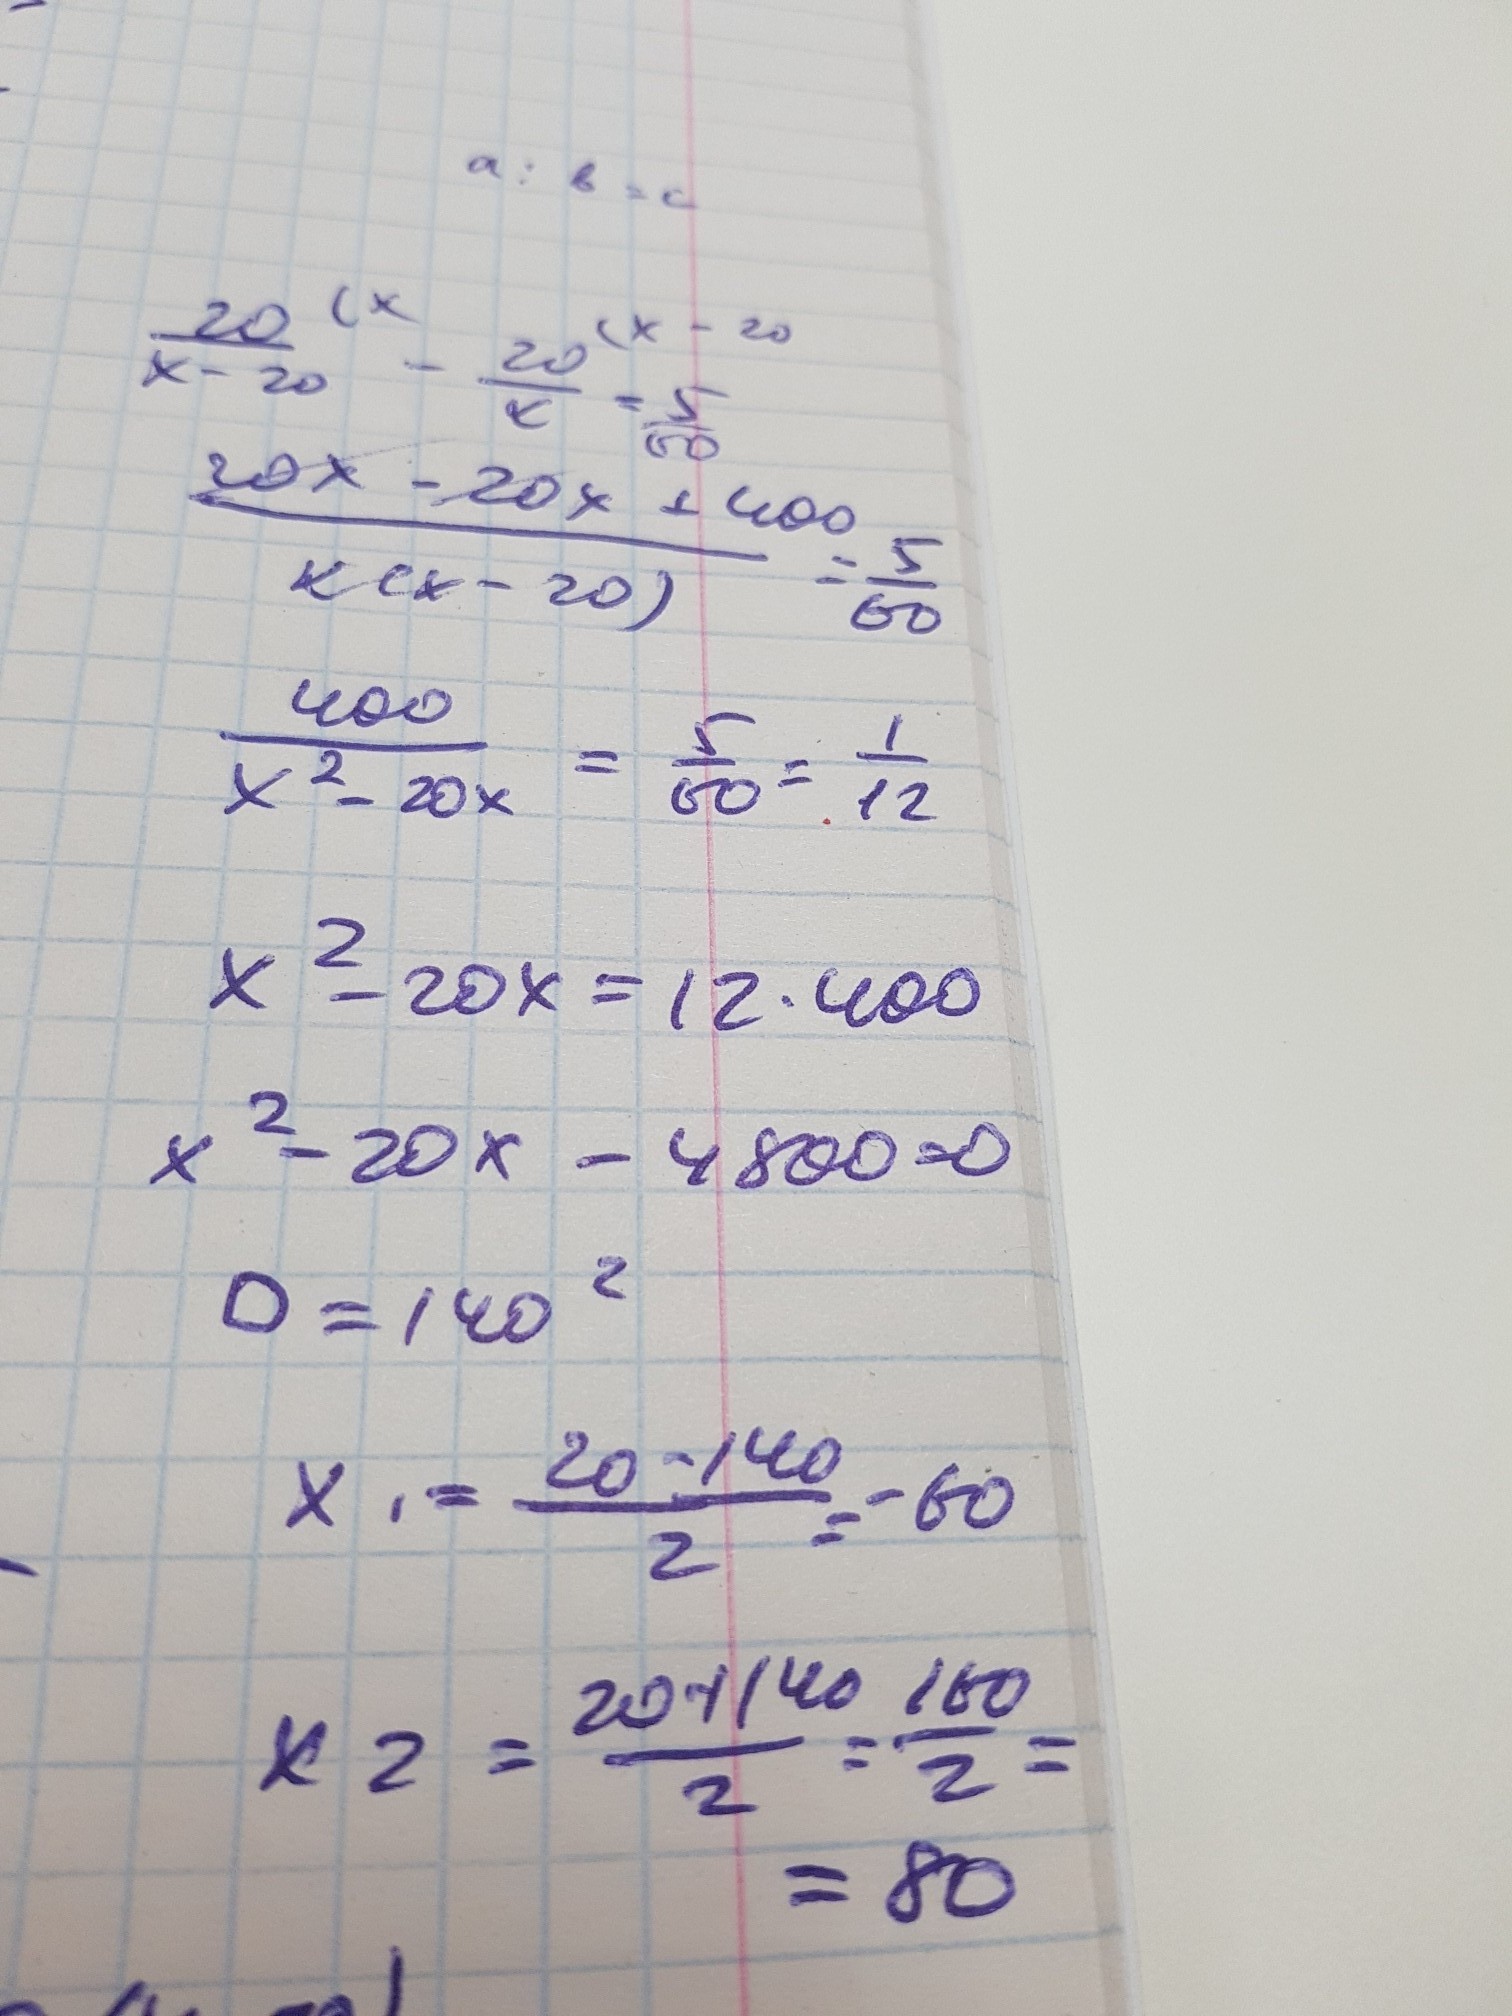 a : b = c
20/(x - 20) (x - 20/x (x - 20 = 5/60
(20x - 20x + 400)/(x(x - 20)) = 5/60
400/(x² - 20x) = 5/60 = 1/12
x² - 20x = 12 · 400
x² - 20x - 4800 = 0
D = 140²
x₁ = (20 - 140)/2 = -60
x2 = (20 + 140)/2 = 160/2 =
= 80